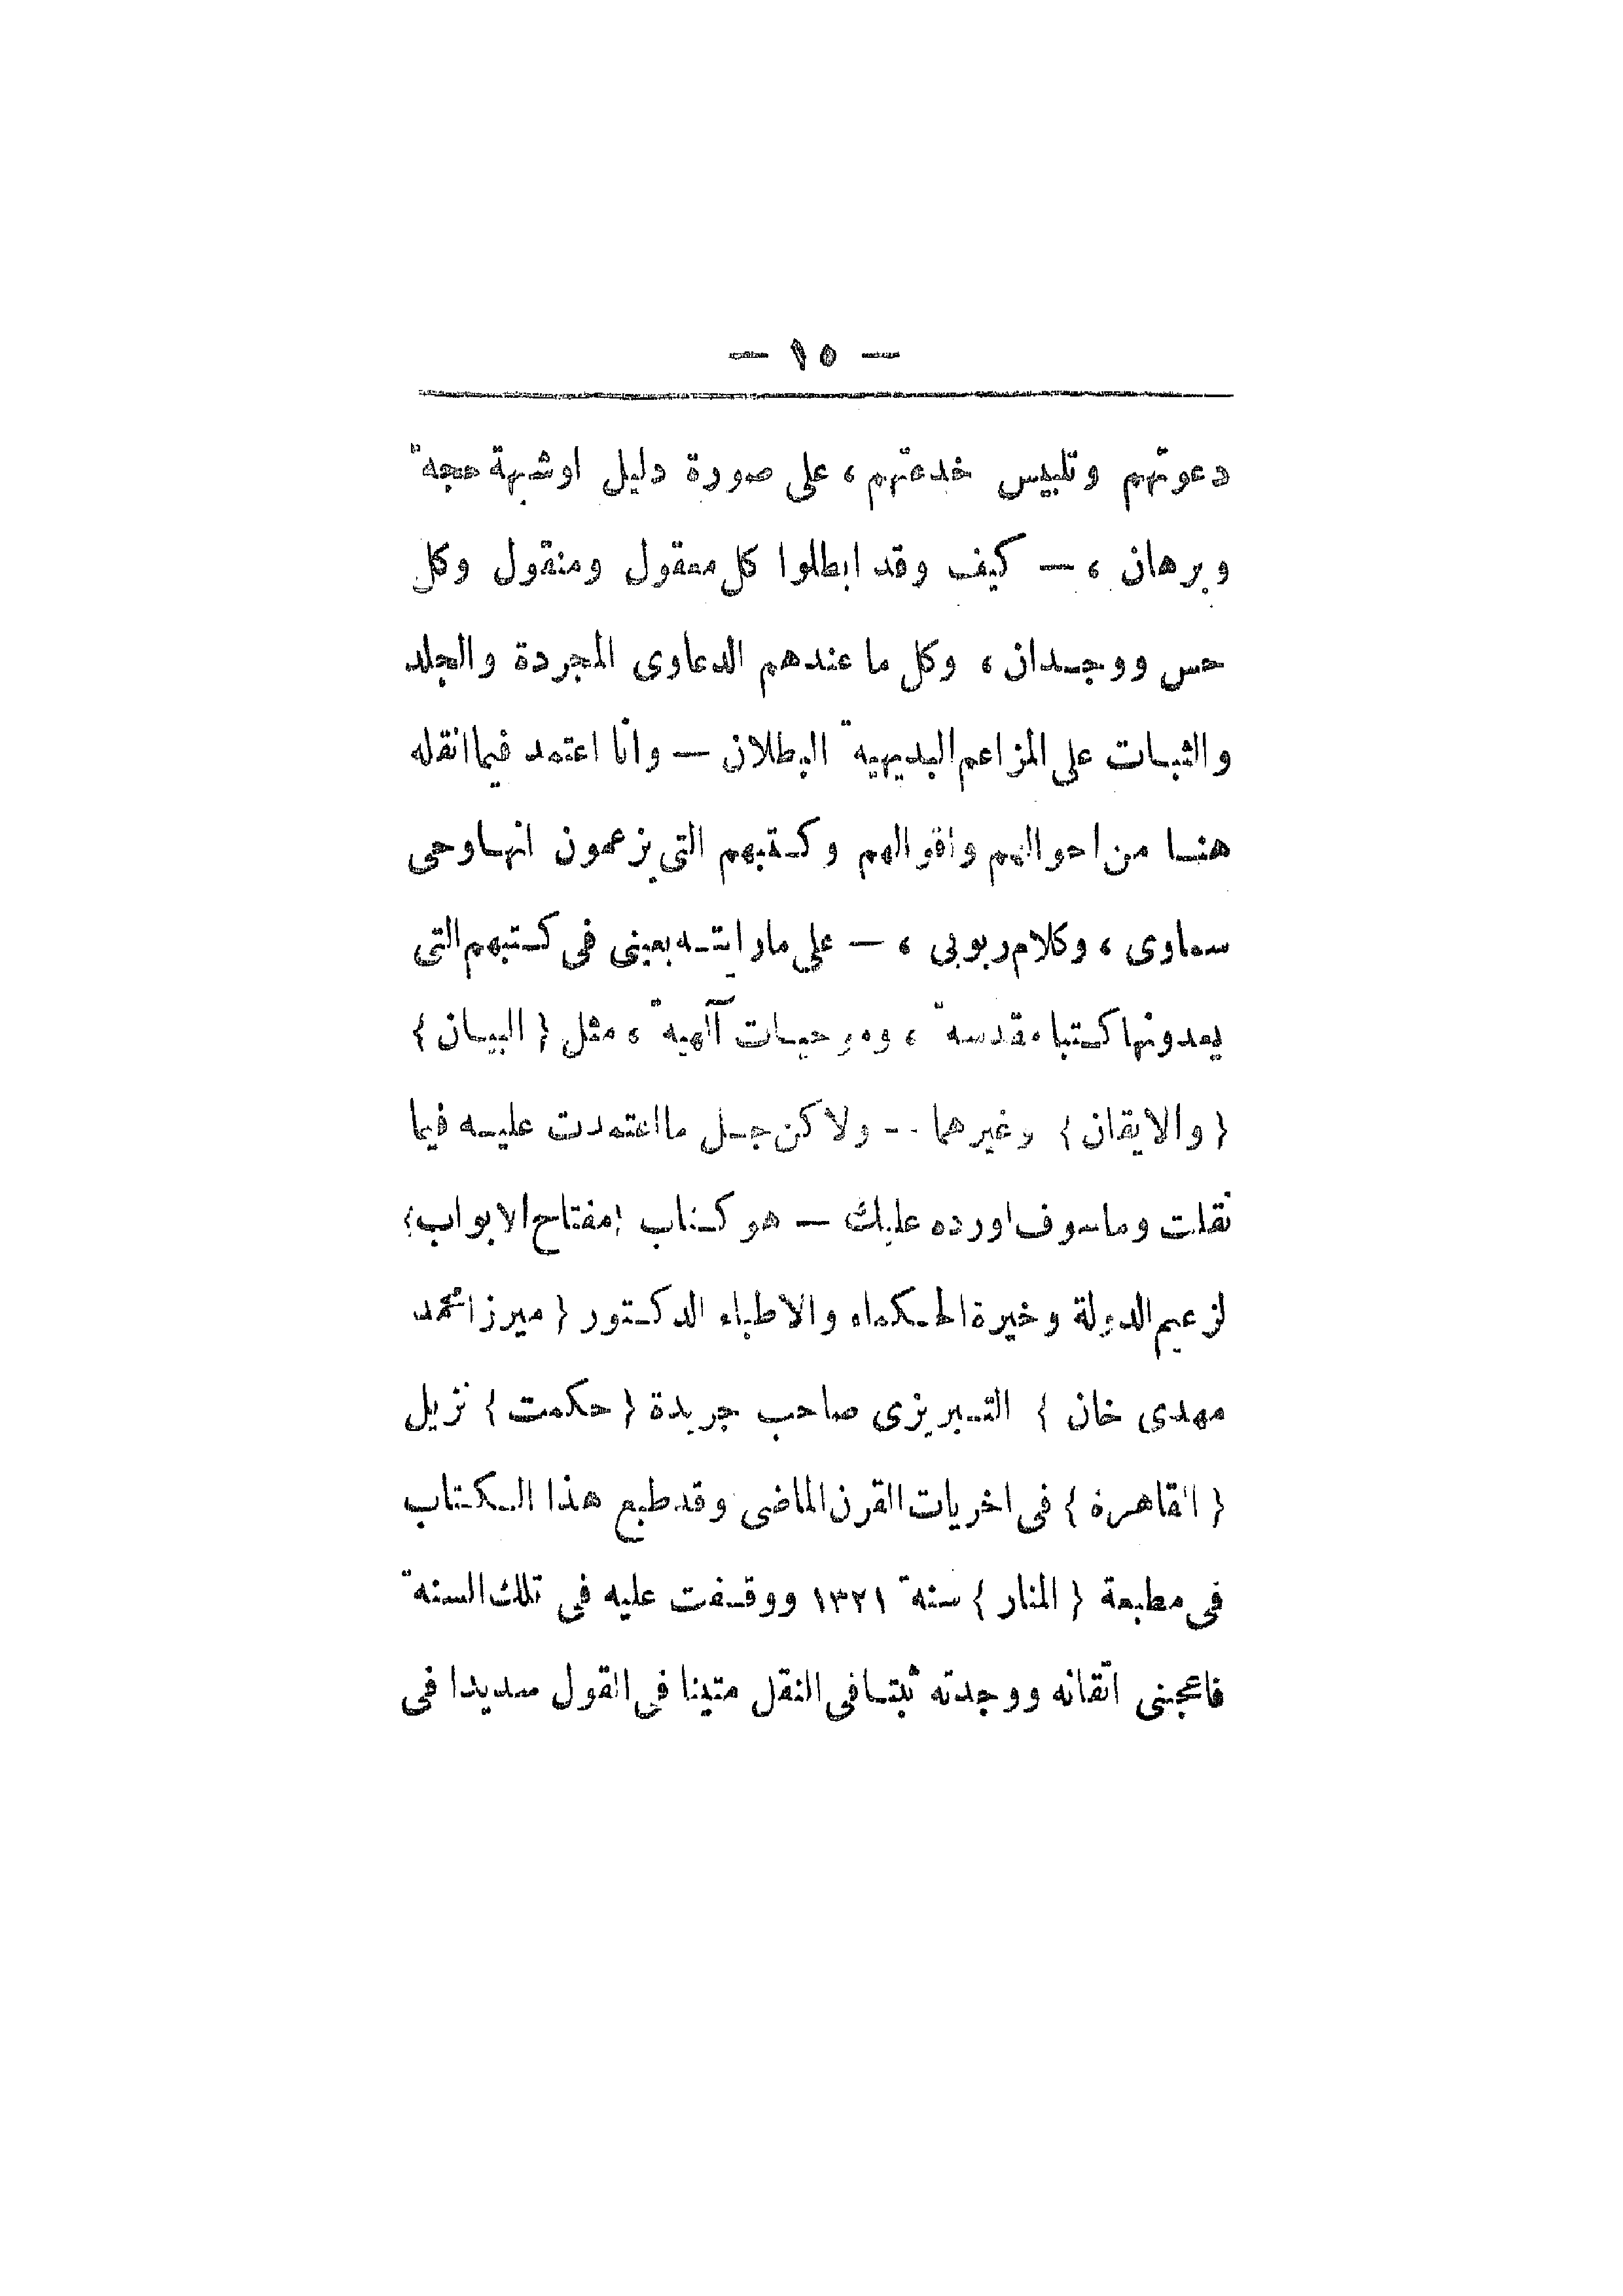 — ١٥ —
دعوتهم وتلبيس خدعتهم ، على صورة دليل اوشبهة حجة
وبرهان ، — كيف وقد ابطلوا كل معقول ومنقول وكل
حس ووجدان ، وكل ما عندهم الدعاوى المجردة والجلد
والثبات على المزاعم البديهية البطلان — وانا اعتمد فيما انقله
هنا من احوالهم واقوالهم وكتبهم التي يزعمون انها وحي
سماوى ، وكلام ربوبى ، — على ما رايته بعيني في كتبهم التي
يعدونها كتبا مقدسة ، وموحيات آلهية ، مثل { البيان }
{ والايقان } وغيرهما -- ولاكن جل ما اعتمدت عليه فيما
نقلت وما سوف اورده عليك — هو كتاب {مفتاح الابواب}
لزعيم الدولة وخيرة الحكماء والاطباء الدكتور { ميرزا محمد
مهدى خان } التبريزى صاحب جريدة { حكمت } نزيل
{ القاهرة } في اخريات القرن الماضى وقد طبع هذا الكتاب
في مطبعة { المنار } سنة ١٣٢١ ووقفت عليه في تلك السنة
فاعجبني اتقانه ووجدته ثبتا في النقل متينا في القول سديدا في